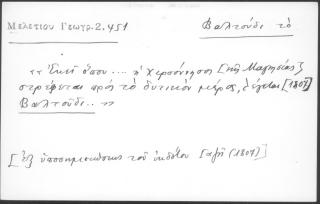 Μελετίου Γεωγρ. 2, 451
Βαλτούδι τὸ
«Ἐκεῖ ὅπου .... ἡ χερσόνησος [τῆς Μαγνησίας]
στρέφεται πρὸς τὸ δυτικὸν μέρος, λέγεται [1807]
Βαλτούδι.. »
[ἐξ ὑποσημειώσεως τοῦ ἐκδότου (1807)]